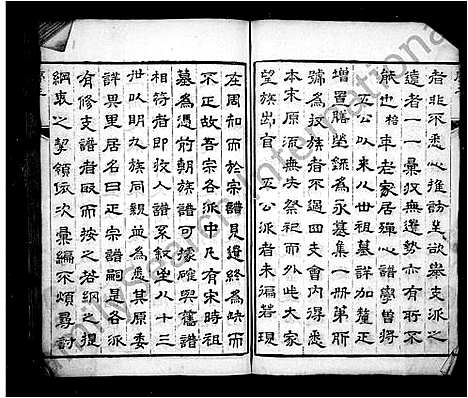 者非不悉心推訪並欲舉支派之
遠者一一彙收無遺勢亦有所不
能也 格 車老家居殫心譜學曾將
五公以來八世祖墓詳加釐正
增置膳塋錄為永墓集一冊第所
號為収族者不過四支會内得悉
本末原流無失祭祀而外此大家
望族出官 五公派者未徧若現
在周知而於宗譜見遺終為缺而
不正故吾宗各派中凡有宋時祖
墓為憑前朝族譜可據確與舊譜
相符者即收入譜系叙並八十三
世以明九族同親為悉其原委
詳異里居名曰正宗譜嗣是各派
有修支譜者取而按之若綱之提
綱衷之挈領依次彙編不煩尋討